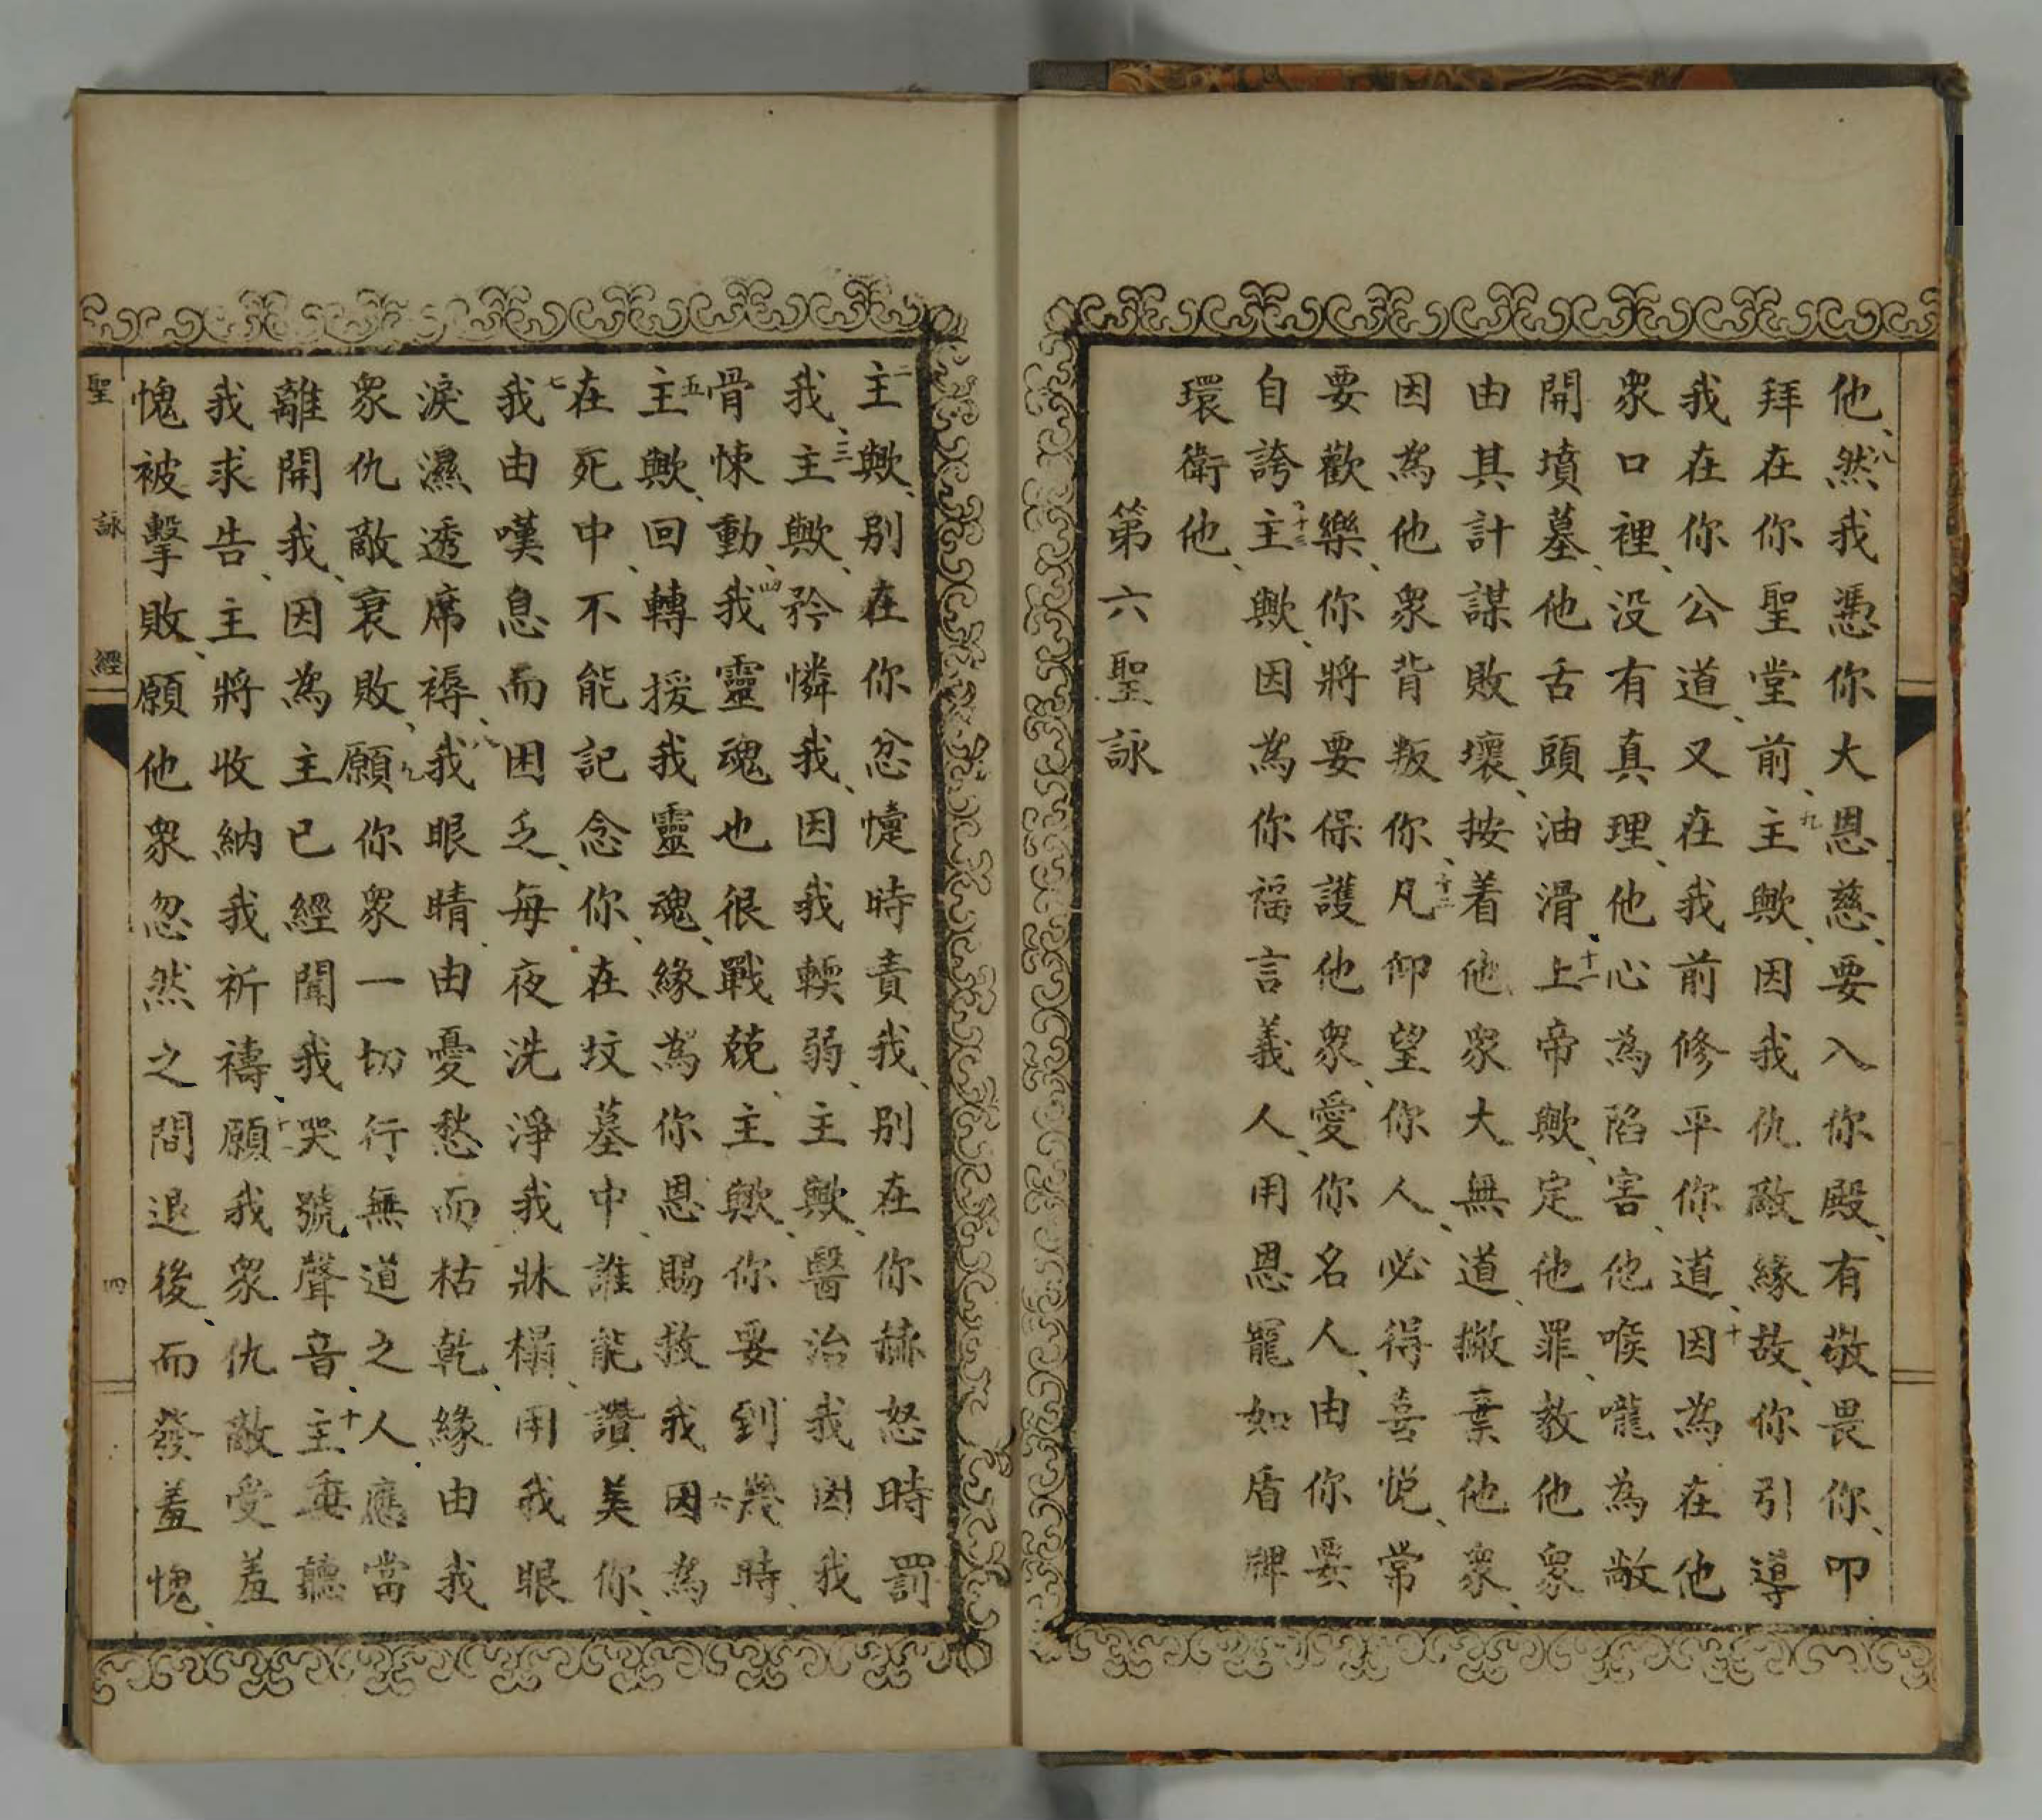 他、八然我憑你大恩慈、要入你殿、有敬畏你、叩
拜在你聖堂前、九主歟、因我仇敵緣故、你引導
我在你公道、又在我前修平你道、十因為在他
衆口裡、没有真理、他心為陷害、他喉嚨為敞
開墳墓、他舌頭油滑、十一上帝歟、定他罪、教他衆
由其計謀敗壞、按着他衆大無道、撇棄他衆、
因為他衆背叛你、十二凡仰望你人、必得喜悅、常
要歡樂、你將要保護他衆、愛你名人、由你要
自誇、十三主歟、因為你福言義人、用恩寵如盾牌
環衛他、
第六聖詠
二主歟、別在你忿懥時責我、別在你赫怒時罰
我、三主歟、矜憐我、因我輭弱、主歟、醫治我因我
骨悚動、四我靈魂也很戰兢、主歟、你要到幾時、
五主歟、回轉援我靈魂、緣為你恩賜救我、六因為
在死中、不能記念你、在坟墓中、誰能讚美你、
七我由嘆息而困乏、每夜洗淨我牀榻、用我眼
淚濕透席褥、八我眼睛、由憂愁而枯乾、緣由我
衆仇敵衰敗、九願你衆一切行無道之人、應當
離開我、因為主已經聞我哭號聲音、十主垂聽
我求告、主將收納我祈禱、十一願我衆仇敵受羞
愧被擊敗、願他衆忽然之間退後、而發羞愧、
聖詠經
四